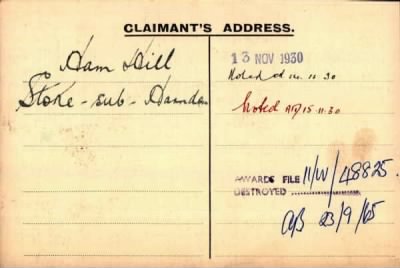 CLAIMANT'S ADDRESS.
Ham Hill
Stoke-sub-Hamdon
13 NOV 1930
Noted 14.11.30
Noted 15.11.30
AWARDS FILE 11/W/48825.
DESTROYED
23/9/65